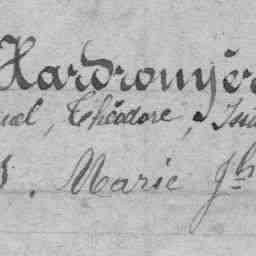 Hardrouyère
uel, Théodore,
. Marie Jh